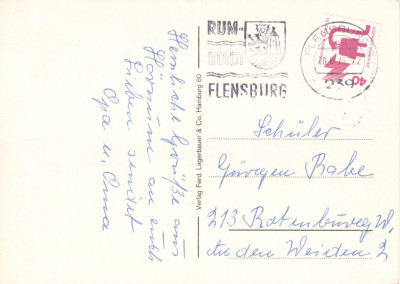 Herzliche Grüße aus
Hörnum an euch
Lieben sendet
Opa u. Oma
Verlag Ferd. Lagerbauer & Co. Hamburg 60
RUM-
STADT
FLENSBURG
FLENSBURG
239
40
Schüler
Jürgen Rabe
213 Rotenburg W.
An den Weiden 2